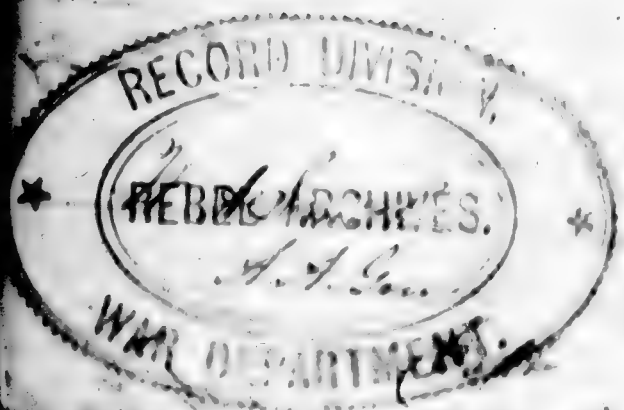 RECORD DIVISION,
REBEL ARCHIVES.
WAR DEPARTMENT.